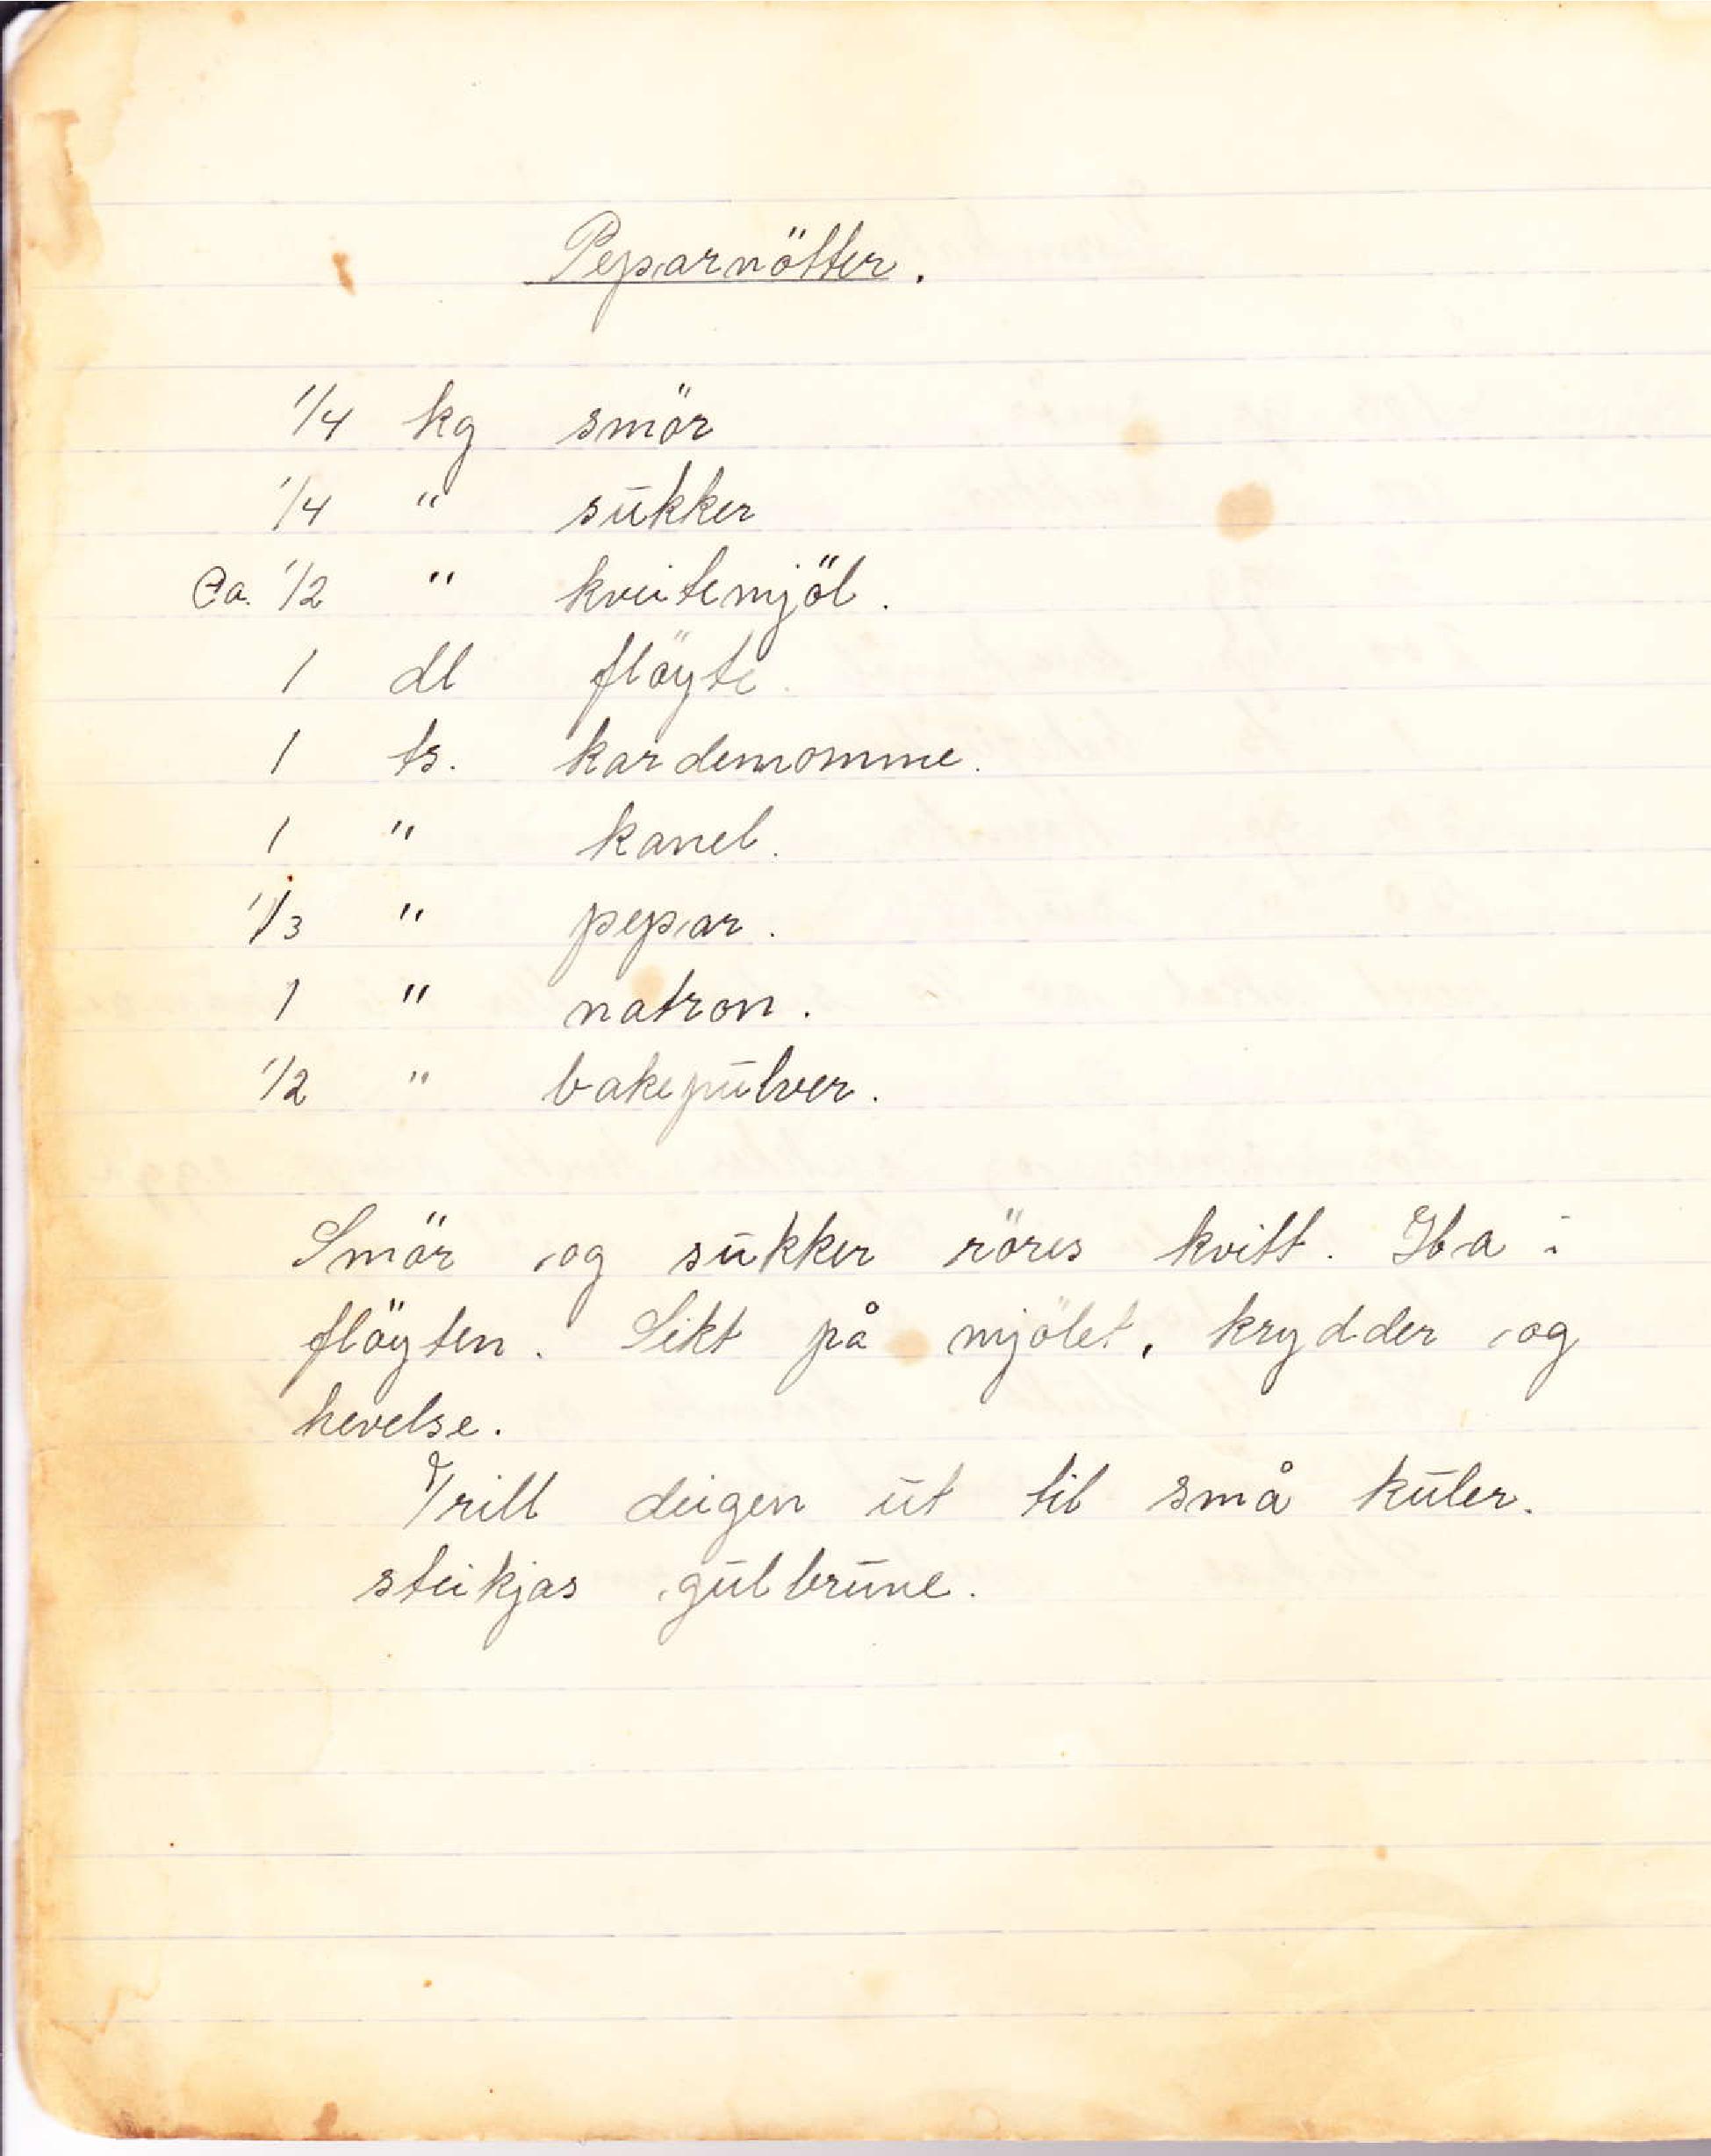 Peparnötter.
1/4 kg smör
1/4 " sukker
Ca. 1/2 " kveitemjöl.
1 dl flöyte.
1 ts. kardemomme.
1 " kanel.
1/3 " pepar.
1 " natron.
1/2 " bakepulver.
Smör og sukker röres kvitt. Ha i
flöyten. Sikt på mjölet, krydder og
hevelse.
Trill deigen ut til små kuler.
steikjas gulbrune.